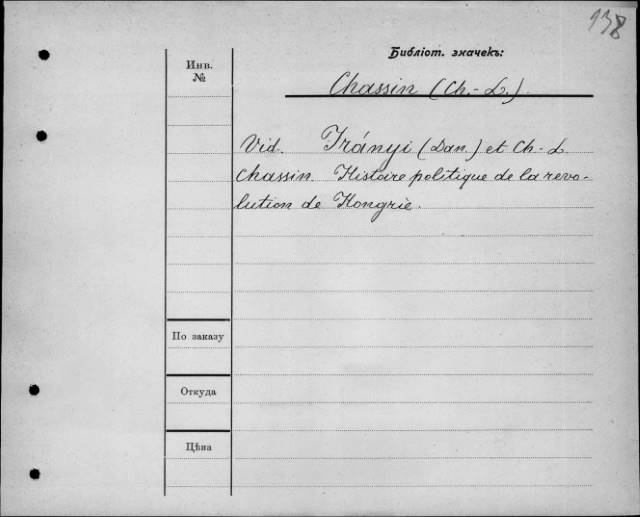 138
Библіот. значекъ:
Инв.
№
Chassin (Ch.-L.).
Vid. Irányi (Dan.) et Ch.-L.
Chassin. Histoire politique de la revo-
lution de Hongrie.
По заказу
Откуда
Цѣна